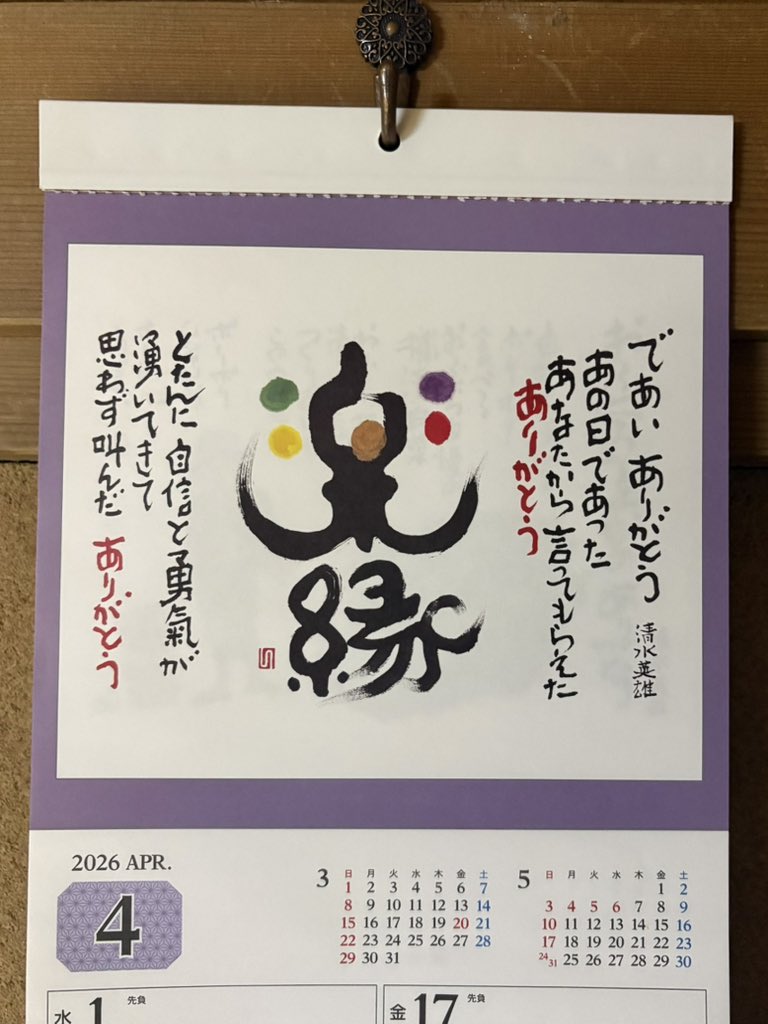 であい ありがとう
清水英雄
あの日であった
あなたから言ってもらえた
ありがとう
楽縁
とたんに 自信と勇氣が
湧いてきて
思わず叫んだ ありがとう
2026 APR.
4
3
日 月 火 水 木 金 土
1 2 3 4 5 6 7
8 9 10 11 12 13 14
15 16 17 18 19 20 21
22 23 24 25 26 27 28
29 30 31
5
日 月 火 水 木 金 土
1 2
3 4 5 6 7 8 9
10 11 12 13 14 15 16
17 18 19 20 21 22 23
24/31 25 26 27 28 29 30
水 1 先負
金 17 先負